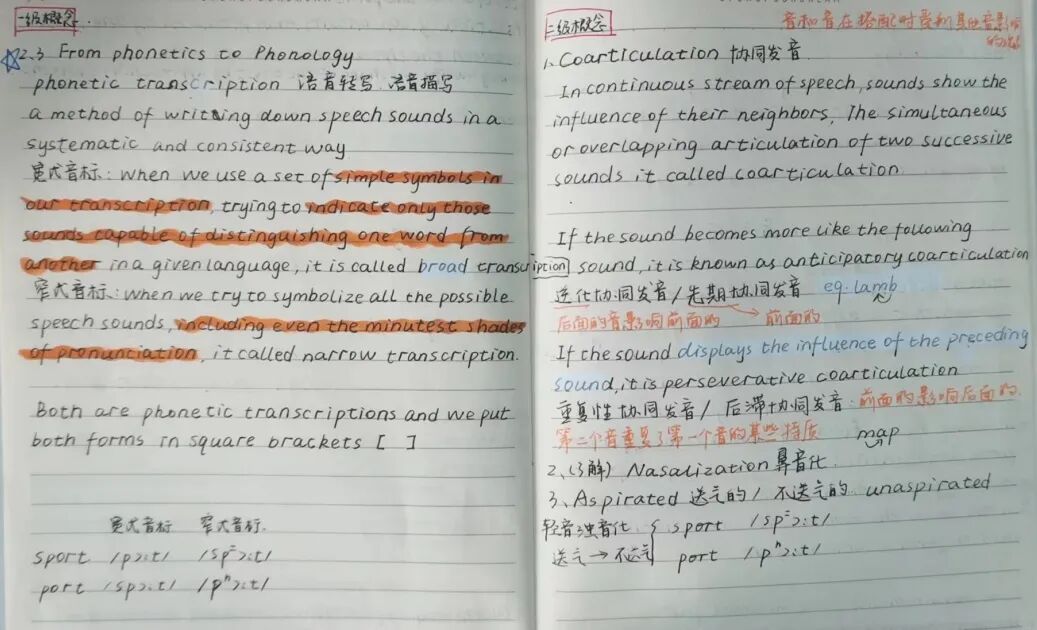 一级概念
2.3 From phonetics to Phonology
phonetic transcription 语音转写 语音描写
a method of writing down speech sounds in a
systematic and consistent way
宽式音标: when we use a set of simple symbols in
our transcription, trying to indicate only those
sounds capable of distinguishing one word from
another in a given language, it is called broad transcription
窄式音标: when we try to symbolize all the possible
speech sounds, including even the minutest shades
of pronunciation, it called narrow transcription.
Both are phonetic transcriptions and we put
both forms in square brackets [ ]
宽式音标 窄式音标.
sport /pɔ:t/ /sp⁼ɔ:t/
port /spɔ:t/ /pʰɔ:t/
二级概念
音和音在搭配时受到其他音影响
1、Coarticulation 协同发音
In continuous stream of speech, sounds show the
influence of their neighbors, The simultaneous
or overlapping articulation of two successive
sounds it called coarticulation
If the sound becomes more like the following
sound, it is known as anticipatory coarticulation
逆化协同发音/先期协同发音 eg. lamb
后面的音影响前面的 → 前面的
If the sound displays the influence of the preceding
sound, it is perseverative coarticulation
重复性协同发音/后滞协同发音: 前面的影响后面的.
第二个音重复了第一个音的某些特质 map
2、(了解) Nasalization 鼻音化
3、Aspirated 送气的/不送气的 unaspirated
轻音浊音化 { sport /sp⁼ɔ:t/
送气→不送气 port /pʰɔ:t/